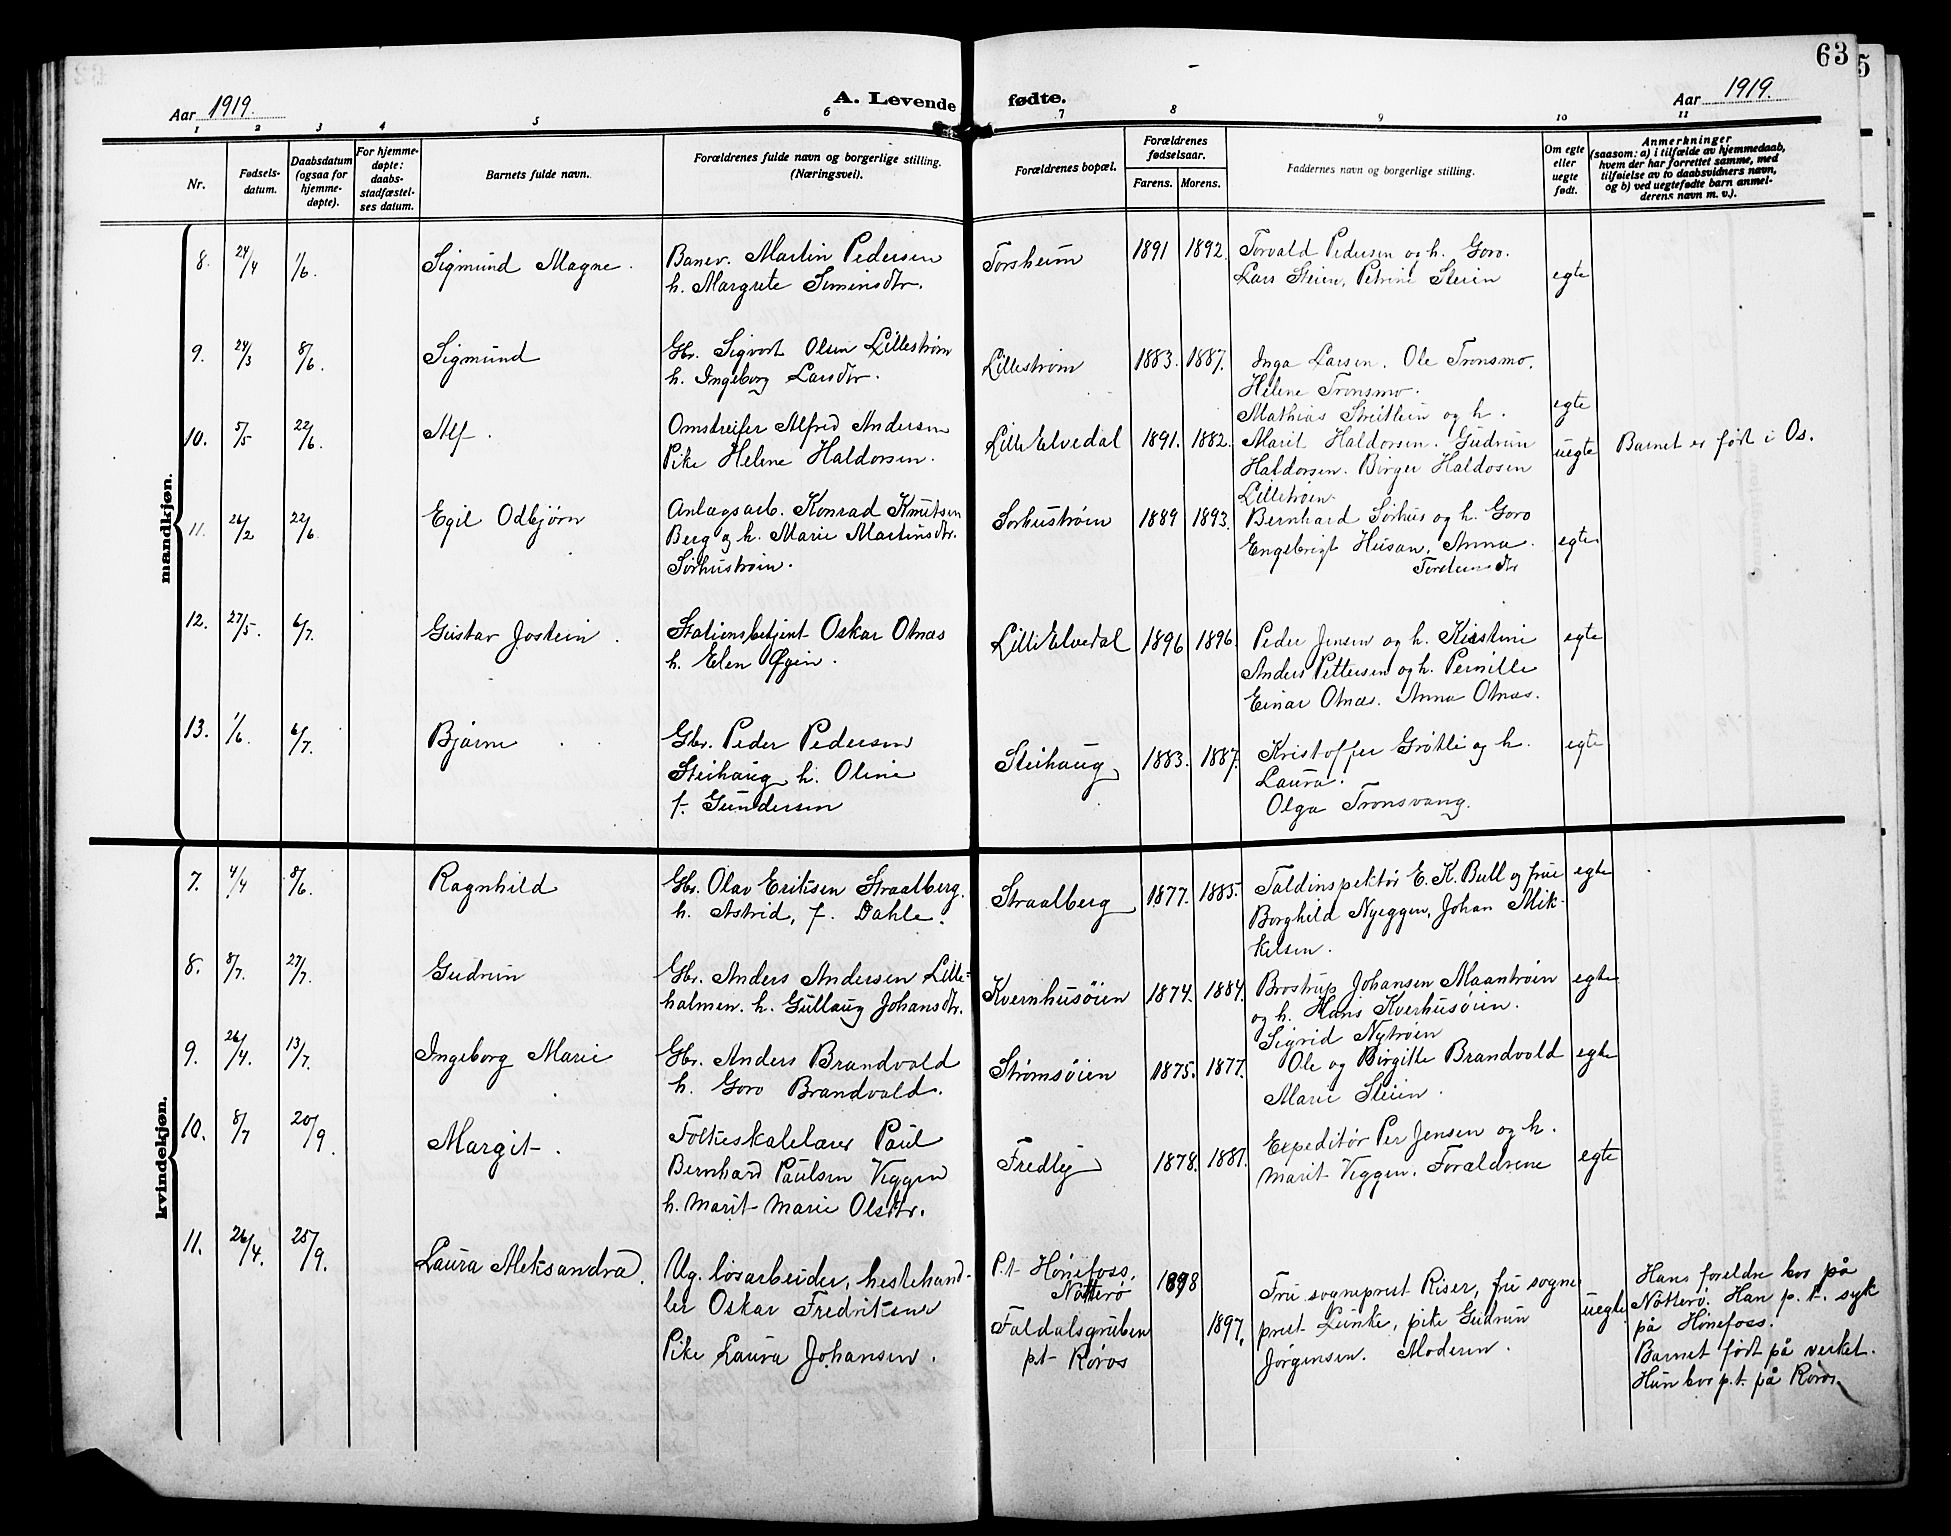 63
5
Aar 1919.
A. Levende fødte.
Aar 1919.
1 2 3 4 5 6 7 8 9 10 11
Nr.
Fødsels-
datum.
Daabsdatum
(ogsaa for
hjemme-
døpte).
For hjemme-
døpte:
daabs-
stadfæstel-
ses datum.
Barnets fulde navn.
Forældrenes fulde navn og borgerlige stilling.
(Næringsvei).
Forældrenes bopæl.
Forældrenes
fødselsaar.
Farens. Morens.
Faddernes navn og borgerlige stilling.
Om egte
eller
uegte
født.
Anmerkninger
(saasom: a) i tilfælde av hjemmedaab,
hvem der har forrettet samme, med
tilføielse av to daabsvidners navn,
og b) ved uegtefødte barn anmel-
derens navn m. v.).
mandkjøn.
8. 24/4 1/6. Sigmund Magne.
Banev. Martin Pedersen
h. Margrete Simensdtr.
Torsheim 1891 1892.
Torvald Pedersen og h. Goro.
Lars Steien, Petrine Steien
egte
9. 24/3 8/6. Sigmund
Gbr. Sigvart Olsen Lillestrøm
h. Ingeborg Larsdtr.
Lillestrøm 1883. 1887.
Inga Larsen. Ole Tronsmo.
Helene Tronsmo.
egte
10. 5/5 22/6. Alf.
Omstreifer Alfred Andersen
Pike Helene Haldorsen.
Lille Elvedal 1891. 1882.
Mathias Streitlien og h.
Marit Haldorsen. Gudrun
Haldorsen. Birger Haldosen
Lillestrøen.
uegte
Barnet er født i Os.
11. 26/2 22/6. Egil Odbjørn
Anlægsarb. Konrad Knutsen
Berg og h. Marie Martinsdtr.
Sørhustrøin.
Sørhustrøin 1889 1893.
Bernhard Sørhus og h. Goro
Engebrigt Husan, Anna
Torsteinsdtr
egte
12. 27/5. 6/7. Gustav Jostein.
Stationsbetjent Oskar Otnæs
h. Elen Øgin.
Lille Elvedal 1896 1896.
Peder Jensen og h. Kirstine
Anders Pettersen og h. Pernille
Einar Otnæs. Anna Otnæs.
egte
13. 1/6. 6/7. Bjarne
Gbr. Peder Pedersen
Steihaug h. Oline
f. Gundersen
Steihaug 1883. 1887.
Kristoffer Grøtli og h.
Laura.
Olga Tronsvang.
egte
kvindekjøn.
7. 4/4 8/6. Ragnhild
Gbr. Olav Eriksen Straalberg.
h. Astrid, f. Dahle.
Straalberg 1877. 1885.
Taldinspektør E. K. Bull og frue
Borghild Nyeggen, Johan Mik-
kelsen.
egte
8. 8/7. 27/7. Gudrun
Gbr. Anders Andersen Lille-
holmen. h. Gullaug Johansdtr.
Kvernhusøien 1874. 1884.
Brostrup Johansen Maantrøen
og h. Hans Kverhusøien.
Sigrid Nytrøen
egte
9. 26/4. 13/7. Ingeborg Marie
Gbr. Anders Brandvold
h. Goro Brandvold.
Strømsøien 1875. 1877.
Ole og Birgitte Brandvold
Marie Steien.
egte
10. 8/7 20/9. Margit.
Folkeskolelærer Paul
Bernhard Paulsen Viggen
h. Marit Marie Olsdtr.
Fredly 1878. 1887.
Expeditør Per Jensen og h.
Marit Viggen. Forældrene
egte
11. 26/4. 25/9. Laura Aleksandra.
Ug. løsarbeider, hestehand-
ler Oskar Fredriksen
Pike Laura Johansen.
P.t. Hønefoss.
Nøtterø
Foldalsgruben
p.t. Røros
1898
1897.
Fru sogneprest Riser, fru sogne
prest Lunke, pike Gudrun
Jørgensen. Moderen.
uegte
Hans foreldre bor på
Nøtterø. Han p.t. syk
på Hønefoss.
Barnet født på verket.
Hun bor p.t. på Røros.